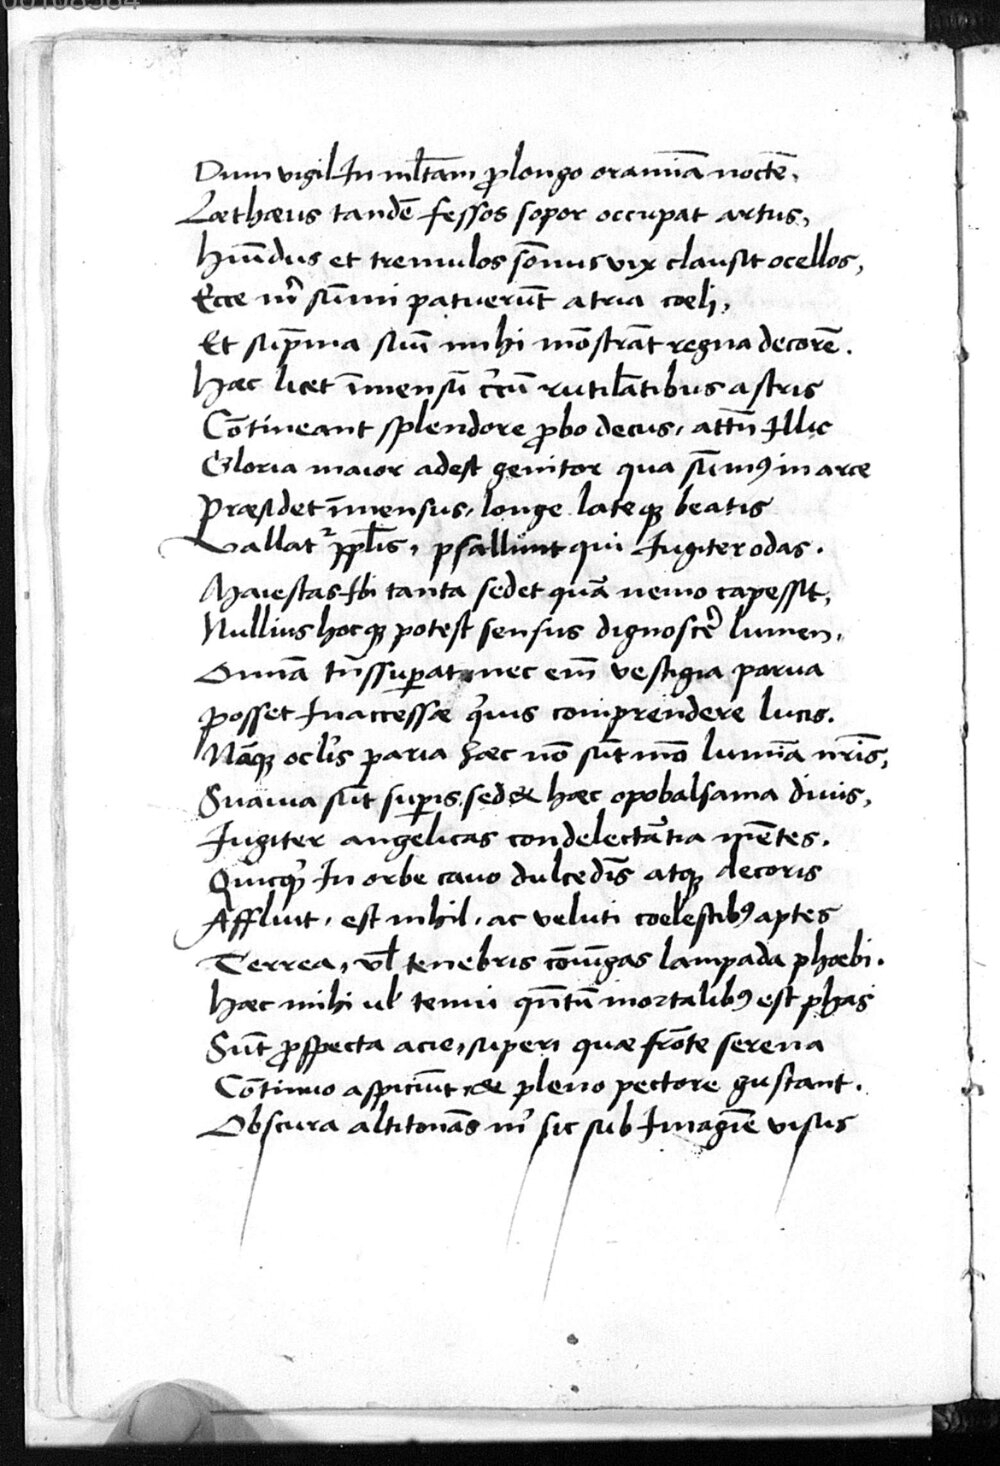 00108384
Dum vigil In ml̄tam p̱longo oramīa noctē,
Læthæus tandē fessos sopor occupat artus,
Hūidus et tremulos sōnus vix clausit ocellos,
Ecce m̄ sūmi patuerūt atria cœli,
Et sup̄ma suū mihi mōstrāt regna decorē.
Hæc licet īmensū c̄cū rutilātibus astris
Cōtineant splendore ꝓbo decus, attn̄ Illic
Gloria maior adest genitor qua sūmꝰ in arce
Præsidet īmensus, longe lateqꝫ beatis
Vallatᷣ pp̄lis, psallunt qui Iugiter odas.
Maiestas Ibi tanta sedet quā nemo capessit,
Nullius hocqꝫ potest sensus dignoscẽ lumen,
Omīa trn̄ssuꝑat nec em̄ vestigia parua
Posset Inaccessæ q̄uis comprendere lucis.
Nāqꝫ oclīs paria hæc nō sūt mō lumīa nr̄is,
Suauia sūt suꝑis, sed & hæc opobalsama diuis,
Iugiter angelicas condelectātia mētes.
Quicqͥ In orbe cauo dulcedīs atqꝫ decoris
Affluit, est nihil, ac veluti cœlestibꝰ aptes
Terrea, vl̄ tenebris cōiūgas lampada phœbi.
Hæc mihi vel tenui qn̄tū mortalibꝰ est phas
Sūt ꝓspecta acie, superi quæ frōte serena
Cōtinuo aspiciūt, & pleno pectore gustant.
Obscura altitonās m̄ sic sub Imagīe visus